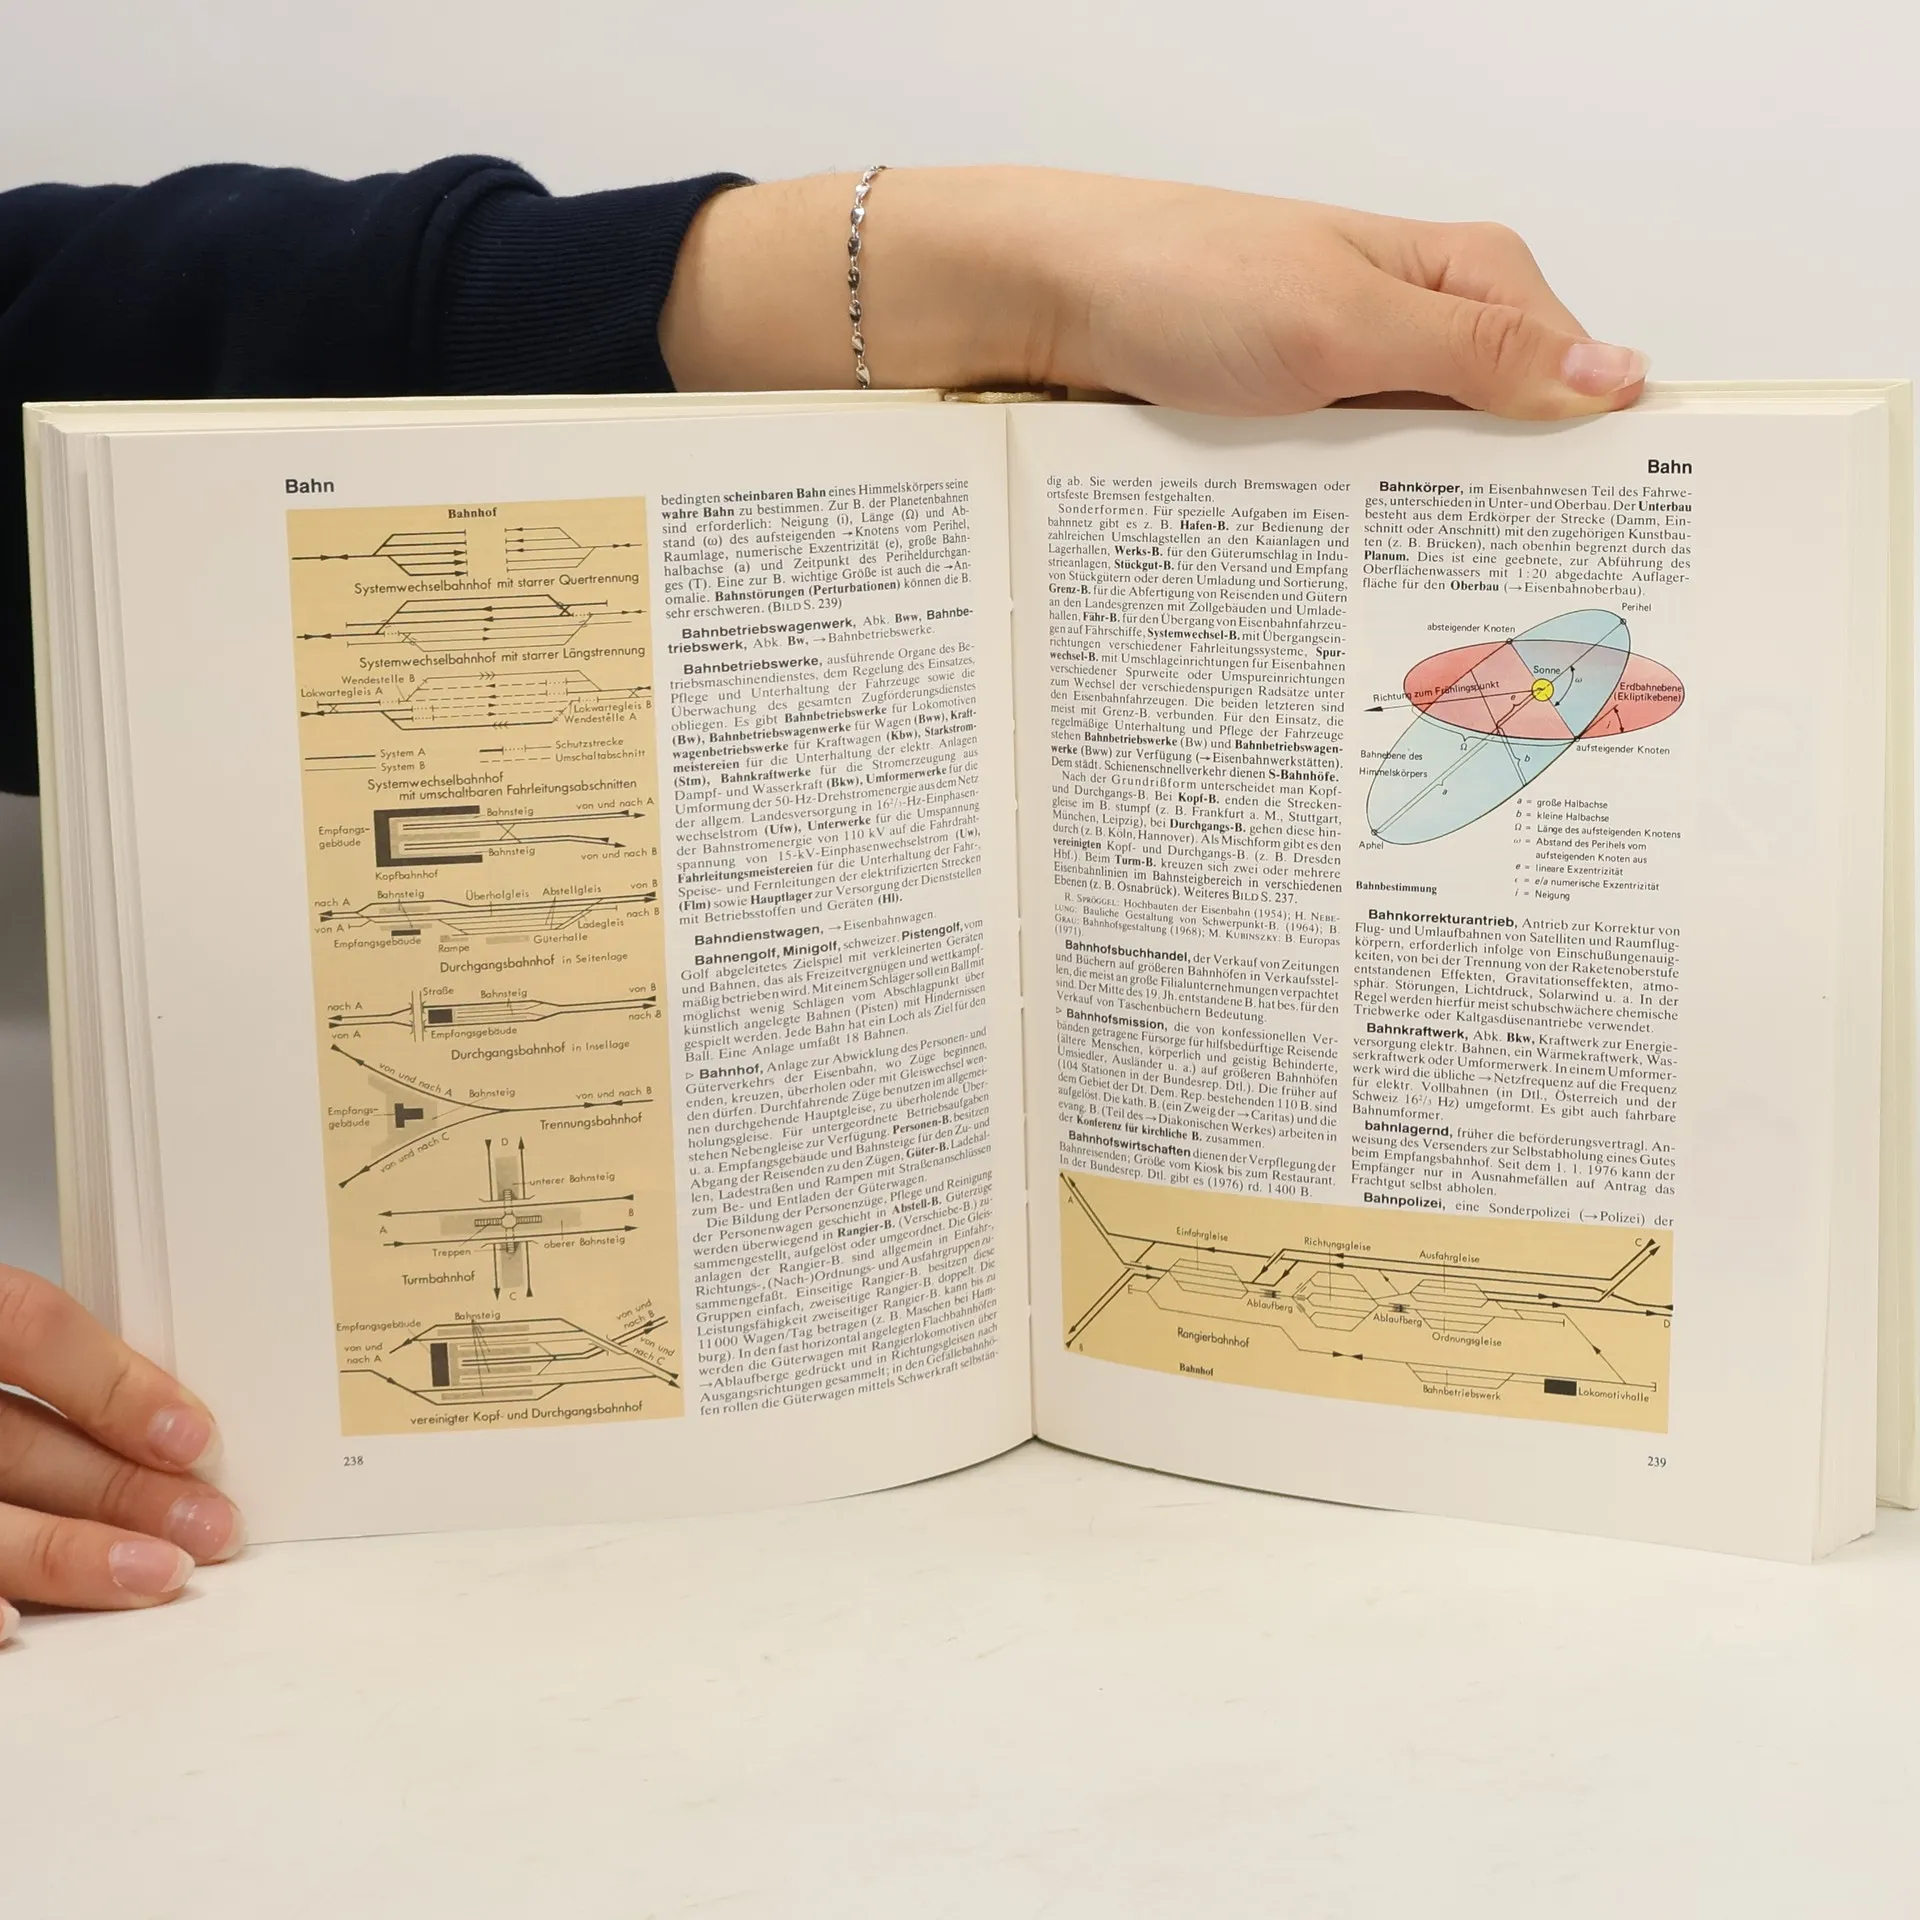 Bahn
Bahnhof
Systemwechselbahnhof mit starrer Quertrennung
Systemwechselbahnhof mit starrer Längstrennung
Wendestelle B
Lokwartegleis A
Lokwartegleis B
Wendestelle A
System A
System B
Schutzstrecke
Umschaltabschnitt
Systemwechselbahnhof
mit umschaltbaren Fahrleitungsabschnitten
Bahnsteig
von und nach A
Empfangs-
gebäude
Bahnsteig
von und nach B
Kopfbahnhof
Bahnsteig
Überholgleis
Abstellgleis
von B
nach A
von A
nach B
Ladegleis
Empfangsgebäude
Rampe
Güterhalle
Durchgangsbahnhof in Seitenlage
Straße
Bahnsteig
von B
nach A
von A
nach B
Empfangsgebäude
Durchgangsbahnhof in Insellage
von und nach A
Bahnsteig
von und nach B
Empfangs-
gebäude
Trennungsbahnhof
von und nach C
D
unterer Bahnsteig
A
B
Treppen
oberer Bahnsteig
Turmbahnhof
C
Bahnsteig
von und
nach B
Empfangsgebäude
von und
nach A
von und
nach C
vereinigter Kopf- und Durchgangsbahnhof
238
bedingten scheinbaren Bahn eines Himmelskörpers seine
wahre Bahn zu bestimmen. Zur B. der Planetenbahnen
sind erforderlich: Neigung (i), Länge (Ω) und Ab-
stand (ω) des aufsteigenden →Knotens vom Perihel,
Raumlage, numerische Exzentrizität (e), große Bahn-
halbachse (a) und Zeitpunkt des Periheldurchgan-
ges (T). Eine zur B. wichtige Größe ist auch die →An-
omalie. Bahnstörungen (Perturbationen) können die B.
sehr erschweren. (BILD S. 239)
Bahnbetriebswagenwerk, Abk. Bww, Bahnbe-
triebswerk, Abk. Bw, →Bahnbetriebswerke.
Bahnbetriebswerke, ausführende Organe des Be-
triebsmaschinendienstes, dem Regelung des Einsatzes,
Pflege und Unterhaltung der Fahrzeuge sowie die
Überwachung des gesamten Zugförderungsdienstes
obliegen. Es gibt Bahnbetriebswerke für Lokomotiven
(Bw), Bahnbetriebswagenwerke für Wagen (Bww), Kraft-
wagenbetriebswerke für Kraftwagen (Kbw), Starkstrom-
meistereien für die Unterhaltung der elektr. Anlagen
(Stm), Bahnkraftwerke für die Stromerzeugung aus
Dampf- und Wasserkraft (Bkw), Umformerwerke für die
Umformung der 50-Hz-Drehstromenergie aus dem Netz
der allgem. Landesversorgung in 16²/₃-Hz-Einphasen-
wechselstrom (Ufw), Unterwerke für die Umspannung
der Bahnstromenergie von 110 kV auf die Fahrdraht-
spannung von 15-kV-Einphasenwechselstrom (Uw),
Fahrleitungsmeistereien für die Unterhaltung der Fahr-,
Speise- und Fernleitungen der elektrifizierten Strecken
(Flm) sowie Hauptlager zur Versorgung der Dienststellen
mit Betriebsstoffen und Geräten (Hl).
Bahndienstwagen, →Eisenbahnwagen.
Bahnengolf, Minigolf, schweizer. Pistengolf, vom
Golf abgeleitetes Zielspiel mit verkleinerten Geräten
und Bahnen, das als Freizeitvergnügen und wettkampf-
mäßig betrieben wird. Mit einem Schläger soll ein Ball mit
möglichst wenig Schlägen vom Abschlagpunkt über
künstlich angelegte Bahnen (Pisten) mit Hindernissen
gespielt werden. Jede Bahn hat ein Loch als Ziel für den
Ball. Eine Anlage umfaßt 18 Bahnen.
▷ Bahnhof, Anlage zur Abwicklung des Personen- und
Güterverkehrs der Eisenbahn, wo Züge beginnen,
enden, kreuzen, überholen oder mit Gleiswechsel wen-
den dürfen. Durchfahrende Züge benutzen im allgemei-
nen durchgehende Hauptgleise, zu überholende Über-
holungsgleise. Für untergeordnete Betriebsaufgaben
stehen Nebengleise zur Verfügung. Personen-B. besitzen
u. a. Empfangsgebäude und Bahnsteige für den Zu- und
Abgang der Reisenden zu den Zügen, Güter-B. Ladehal-
len, Ladestraßen und Rampen mit Straßenanschlüssen
zum Be- und Entladen der Güterwagen.
Die Bildung der Personenzüge, Pflege und Reinigung
der Personenwagen geschieht in Abstell-B. Güterzüge
werden überwiegend in Rangier-B. (Verschiebe-B.) zu-
sammengestellt, aufgelöst oder umgeordnet. Die Gleis-
anlagen der Rangier-B. sind allgemein in Einfahr-,
Richtungs-, (Nach-)Ordnungs- und Ausfahrgruppen zu-
sammengefaßt. Einseitige Rangier-B. besitzen diese
Gruppen einfach, zweiseitige Rangier-B. doppelt. Die
Leistungsfähigkeit zweiseitiger Rangier-B. kann bis zu
11 000 Wagen/Tag betragen (z. B. Maschen bei Ham-
burg). In den fast horizontal angelegten Flachbahnhöfen
werden die Güterwagen mit Rangierlokomotiven über
→Ablaufberge gedrückt und in Richtungsgleisen nach
Ausgangsrichtungen gesammelt; in den Gefällebahnhö-
fen rollen die Güterwagen mittels Schwerkraft selbstän-
Bahn
dig ab. Sie werden jeweils durch Bremswagen oder
ortsfeste Bremsen festgehalten.
Sonderformen. Für spezielle Aufgaben im Eisen-
bahnnetz gibt es z. B. Hafen-B. zur Bedienung der
zahlreichen Umschlagstellen an den Kaianlagen und
Lagerhallen, Werks-B. für den Güterumschlag in Indu-
strieanlagen, Stückgut-B. für den Versand und Empfang
von Stückgütern oder deren Umladung und Sortierung,
Grenz-B. für die Abfertigung von Reisenden und Gütern
an den Landesgrenzen mit Zollgebäuden und Umlade-
hallen, Fähr-B. für den Übergang von Eisenbahnfahrzeu-
gen auf Fährschiffe, Systemwechsel-B. mit Übergangsein-
richtungen verschiedener Fahrleitungssysteme, Spur-
wechsel-B. mit Umschlageinrichtungen für Eisenbahnen
verschiedener Spurweite oder Umspureinrichtungen
zum Wechsel der verschiedenspurigen Radsätze unter
den Eisenbahnfahrzeugen. Die beiden letzteren sind
meist mit Grenz-B. verbunden. Für den Einsatz, die
regelmäßige Unterhaltung und Pflege der Fahrzeuge
stehen Bahnbetriebswerke (Bw) und Bahnbetriebswagen-
werke (Bww) zur Verfügung (→Eisenbahnwerkstätten).
Dem städt. Schienenschnellverkehr dienen S-Bahnhöfe.
Nach der Grundrißform unterscheidet man Kopf-
und Durchgangs-B. Bei Kopf-B. enden die Strecken-
gleise im B. stumpf (z. B. Frankfurt a. M., Stuttgart,
München, Leipzig), bei Durchgangs-B. gehen diese hin-
durch (z. B. Köln, Hannover). Als Mischform gibt es den
vereinigten Kopf- und Durchgangs-B. (z. B. Dresden
Hbf.). Beim Turm-B. kreuzen sich zwei oder mehrere
Eisenbahnlinien im Bahnsteigbereich in verschiedenen
Ebenen (z. B. Osnabrück). Weiteres BILD S. 237.
R. SPRÖGGEL: Hochbauten der Eisenbahn (1954); H. NEBE-
LUNG: Bauliche Gestaltung von Schwerpunkt-B. (1964); B.
GRAU: Bahnhofsgestaltung (1968); M. KUBINSZKY: B. Europas
(1971).
Bahnhofsbuchhandel, der Verkauf von Zeitungen
und Büchern auf größeren Bahnhöfen in Verkaufsstel-
len, die meist an große Filialunternehmungen verpachtet
sind. Der Mitte des 19. Jh. entstandene B. hat bes. für den
Verkauf von Taschenbüchern Bedeutung.
▷ Bahnhofsmission, die von konfessionellen Ver-
bänden getragene Fürsorge für hilfsbedürftige Reisende
(ältere Menschen, körperlich und geistig Behinderte,
Umsiedler, Ausländer u. a.) auf größeren Bahnhöfen
(104 Stationen in der Bundesrep. Dtl.). Die früher auf
dem Gebiet der Dt. Dem. Rep. bestehenden 110 B. sind
aufgelöst. Die kath. B. (ein Zweig der →Caritas) und die
evang. B. (Teil des →Diakonischen Werkes) arbeiten in
der Konferenz für kirchliche B. zusammen.
Bahnhofswirtschaften dienen der Verpflegung der
Bahnreisenden; Größe vom Kiosk bis zum Restaurant.
In der Bundesrep. Dtl. gibt es (1976) rd. 1400 B.
Bahn­körper, im Eisenbahnwesen Teil des Fahrwe-
ges, unterschieden in Unter- und Oberbau. Der Unterbau
besteht aus dem Erdkörper der Strecke (Damm, Ein-
schnitt oder Anschnitt) mit den zugehörigen Kunstbau-
ten (z. B. Brücken), nach obenhin begrenzt durch das
Planum. Dies ist eine geebnete, zur Abführung des
Oberflächenwassers mit 1:20 abgedachte Auflager-
fläche für den Oberbau (→Eisenbahnoberbau).
Perihel
absteigender Knoten
Sonne
ω
Erdbahnebene
(Ekliptikebene)
Richtung zum Frühlingspunkt
e
i
Ω
aufsteigender Knoten
Bahnebene des
Himmelskörpers
b
a
Aphel
a = große Halbachse
b = kleine Halbachse
Ω = Länge des aufsteigenden Knotens
ω = Abstand des Perihels vom
aufsteigenden Knoten aus
e = lineare Exzentrizität
ε = e/a numerische Exzentrizität
i = Neigung
Bahnbestimmung
Bahnkorrekturantrieb, Antrieb zur Korrektur von
Flug- und Umlaufbahnen von Satelliten und Raumflug-
körpern, erforderlich infolge von Einschußungenauig-
keiten, von bei der Trennung von der Raketenoberstufe
entstandenen Effekten, Gravitationseffekten, atmo-
sphär. Störungen, Lichtdruck, Solarwind u. a. In der
Regel werden hierfür meist schubschwächere chemische
Triebwerke oder Kaltgasdüsenantriebe verwendet.
Bahnkraftwerk, Abk. Bkw, Kraftwerk zur Energie-
versorgung elektr. Bahnen, ein Wärmekraftwerk, Was-
serkraftwerk oder Umformerwerk. In einem Umformer-
werk wird die übliche →Netzfrequenz auf die Frequenz
für elektr. Vollbahnen (in Dtl., Österreich und der
Schweiz 16²/₃ Hz) umgeformt. Es gibt auch fahrbare
Bahnumformer.
bahnlagernd, früher die beförderungsvertragl. An-
weisung des Versenders zur Selbstabholung eines Gutes
beim Empfangsbahnhof. Seit dem 1. 1. 1976 kann der
Empfänger nur in Ausnahmefällen auf Antrag das
Frachtgut selbst abholen.
Bahnpolizei, eine Sonderpolizei (→Polizei) der
A
Einfahrgleise
Richtungsgleise
Ausfahrgleise
C
E
Ablaufberg
Ablaufberg
Ordnungsgleise
D
Rangierbahnhof
B
Bahnhof
Bahnbetriebswerk
Lokomotivhalle
239